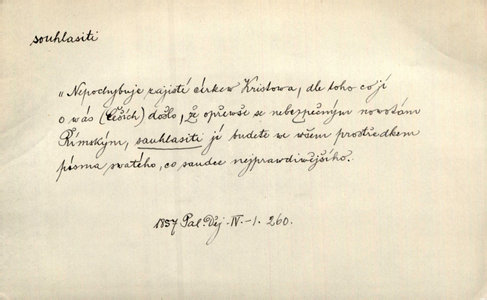 souhlasiti
„Nepochybuje zajisté církew Kristowa, dle toho co jí
o wás (Češích) došlo, že opřewše se nebezpečným nowotám
Římským, souhlasiti jí budete we wšem prostředkem
písma swatého, co saudce nejprawdiwějšího.
1857 Pal. Děj. IV.-1. 260.